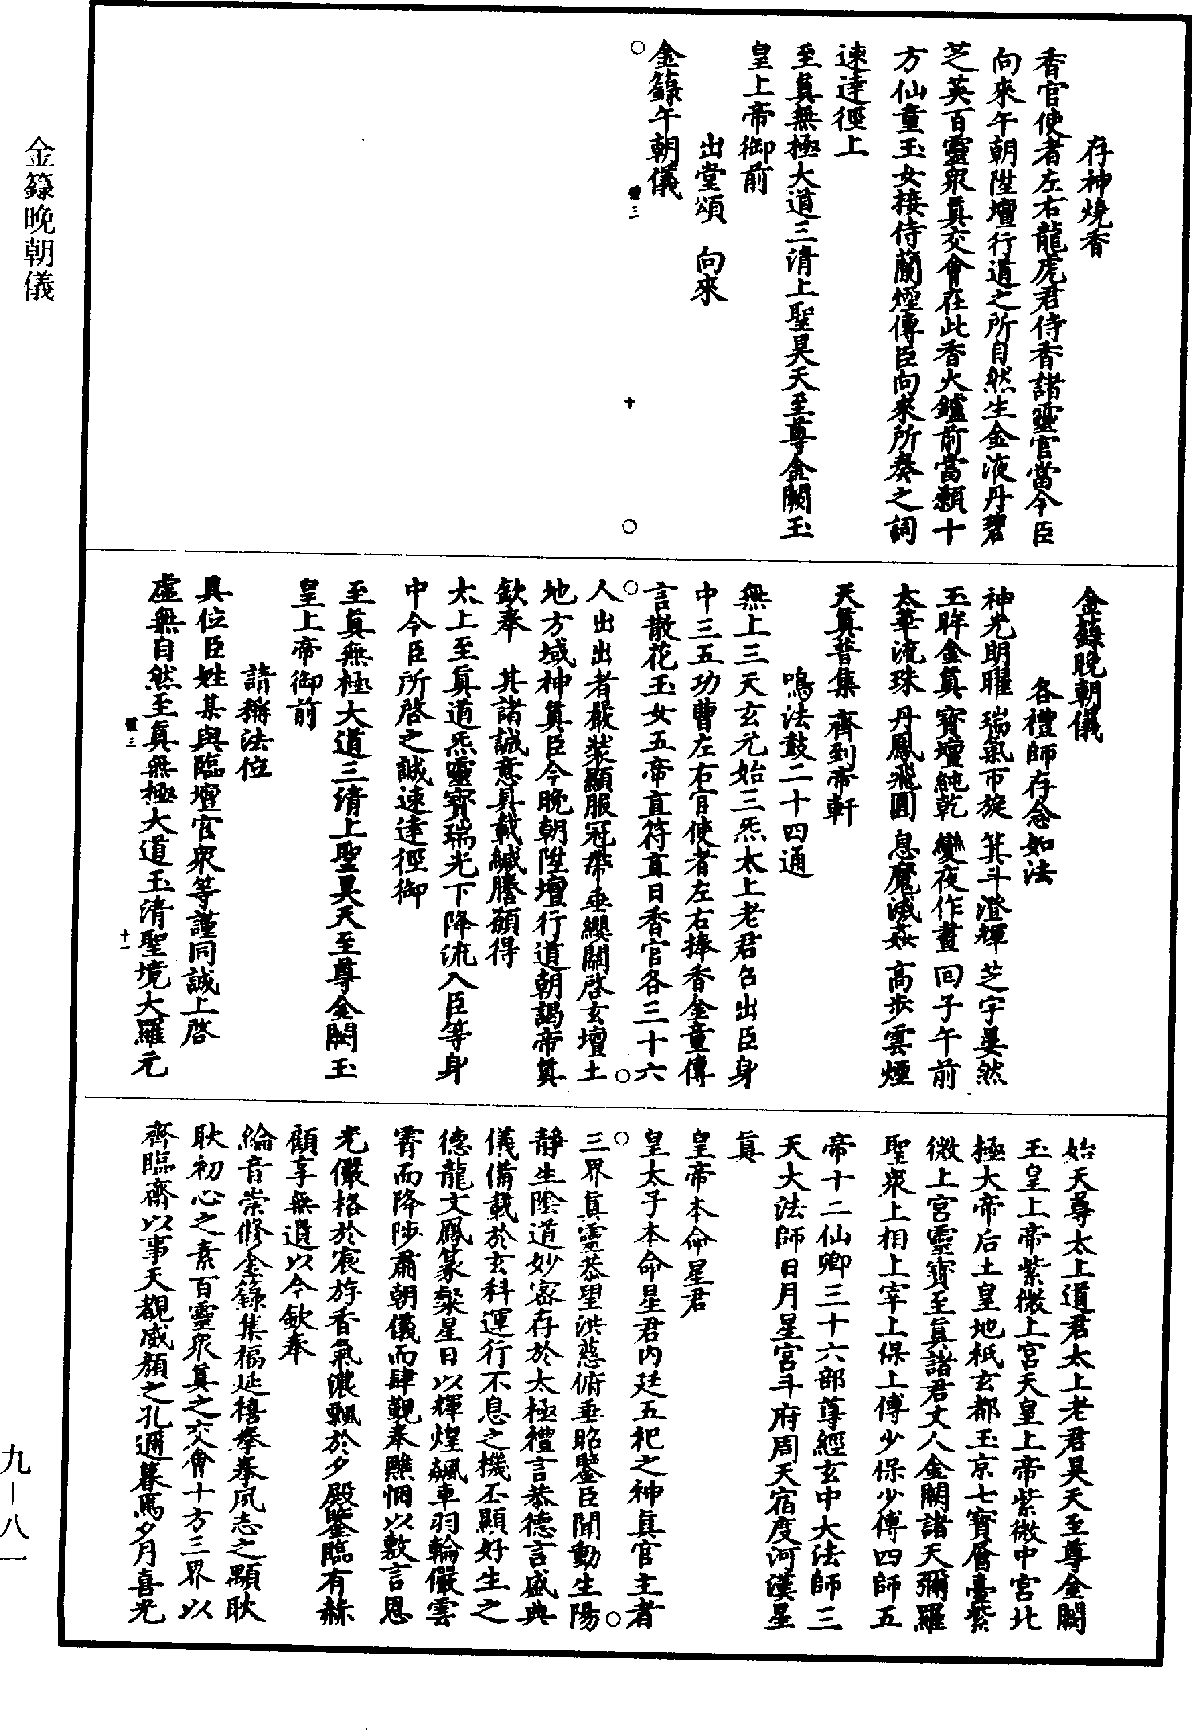 金籙晚朝儀
存神燒香
香官使者左右龍虎君侍香諸靈官當今臣
向來午朝陞壇行道之所自然生金液丹碧
芝英百靈衆眞交會在此香火鑪前當願十
方仙童玉女接侍蘭煙傳臣向來所奏之詞
速達徑上
至眞無極大道三清上聖昊天至尊金闕玉
皇上帝御前
出堂頌　向來
金籙午朝儀
十
金籙晚朝儀
各禮師存念如法
神光明曜　瑞氣帀旋　箕斗澄輝　芝宇晏然
玉眸金眞　寶壇純乾　變夜作晝　回子午前
太華流珠　丹鳳飛圓　息魔滅姦　高步雲煙
天眞普集　齊到帝軒
鳴法鼓二十四通
無上三天玄元始三炁太上老君召出臣身
中三五功曹左右官使者左右捧香金童傳
言散花玉女五帝直符直日香官各三十六
人出出者嚴裝顯服冠帶垂纓關啓玄壇土
地方域神眞臣今晚朝陞壇行道朝謁帝眞
欽奉　其諸誠意具載緘謄願得
太上至眞道炁靈寶瑞光下降流入臣等身
中令臣所啓之誠速達徑御
至眞無極大道三清上聖昊天至尊金闕玉
皇上帝御前
請稱法位
具位臣姓某與臨壇官衆等謹同誠上啓
虛無自然至眞無極大道玉清聖境大羅元
十一
始天尊太上道君太上老君昊天至尊金闕
玉皇上帝紫微上宮天皇上帝紫微中宮北
極大帝后土皇地祇玄都玉京七寶層臺紫
微上宮靈寶至眞諸君丈人金闕諸天彌羅
聖衆上相上宰上保上傅少保少傅四師五
帝十二仙卿三十六部尊經玄中大法師三
天大法師日月星宮斗府周天宿度河漢星
眞
皇帝本命星君
皇太子本命星君内廷五祀之神眞官主者
三界眞靈恭望洪慈俯垂昭鑒臣聞動生陽
靜生陰道妙密存於太極禮言恭德言盛典
儀備載於玄科運行不息之機丕顯好生之
德龍文鳳篆粲星日以輝煌飆車羽輪儼雲
霄而降陟肅朝儀而肆覲奉臕悃以敷言恩
光儼格於宸旂香氣濃飄於夕殿鑒臨有赫
顧享無遐以今欽奉
綸音崇修金籙集福延禧拳拳夙志之顒耿
耿初心之素百靈衆眞之交會十方三界以
齊臨齋以事天覩威顏之孔邇暮焉夕月喜光
九－八一